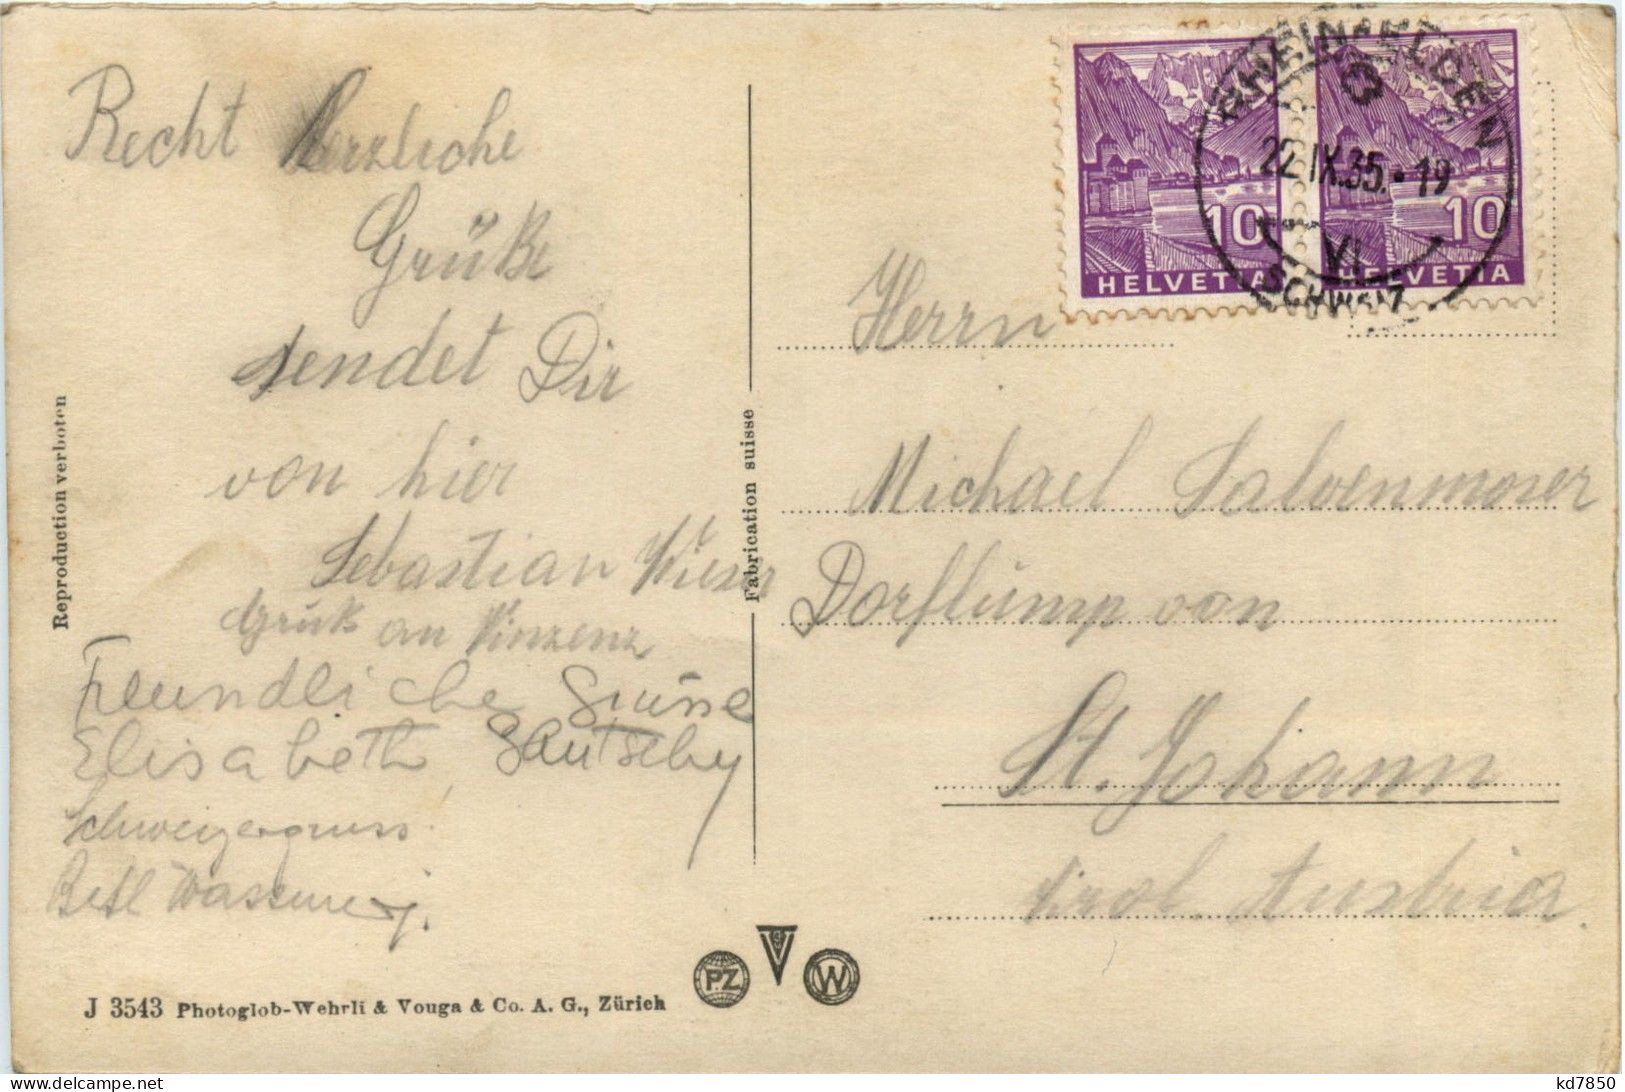 Recht Herzliche
Grüße
sendet Dir
von hier
Sebastian Wieser
Gruß an Vinzenz
Freundliche Grüsse
Elisabeth
Schweizergruss
Reproduction verboten
Fabrication suisse
J 3543 Photoglob-Wehrli & Vouga & Co. A. G., Zürich
PZ
V
W
10
HELVETIA
10
HELVETIA
RHEINFELDEN
22.IX.35.-19
VI
SCHWEIZ
Herrn
Michael Salvenmoser
Dorflump von
St. Johann
Tirol. Austria
kd7850